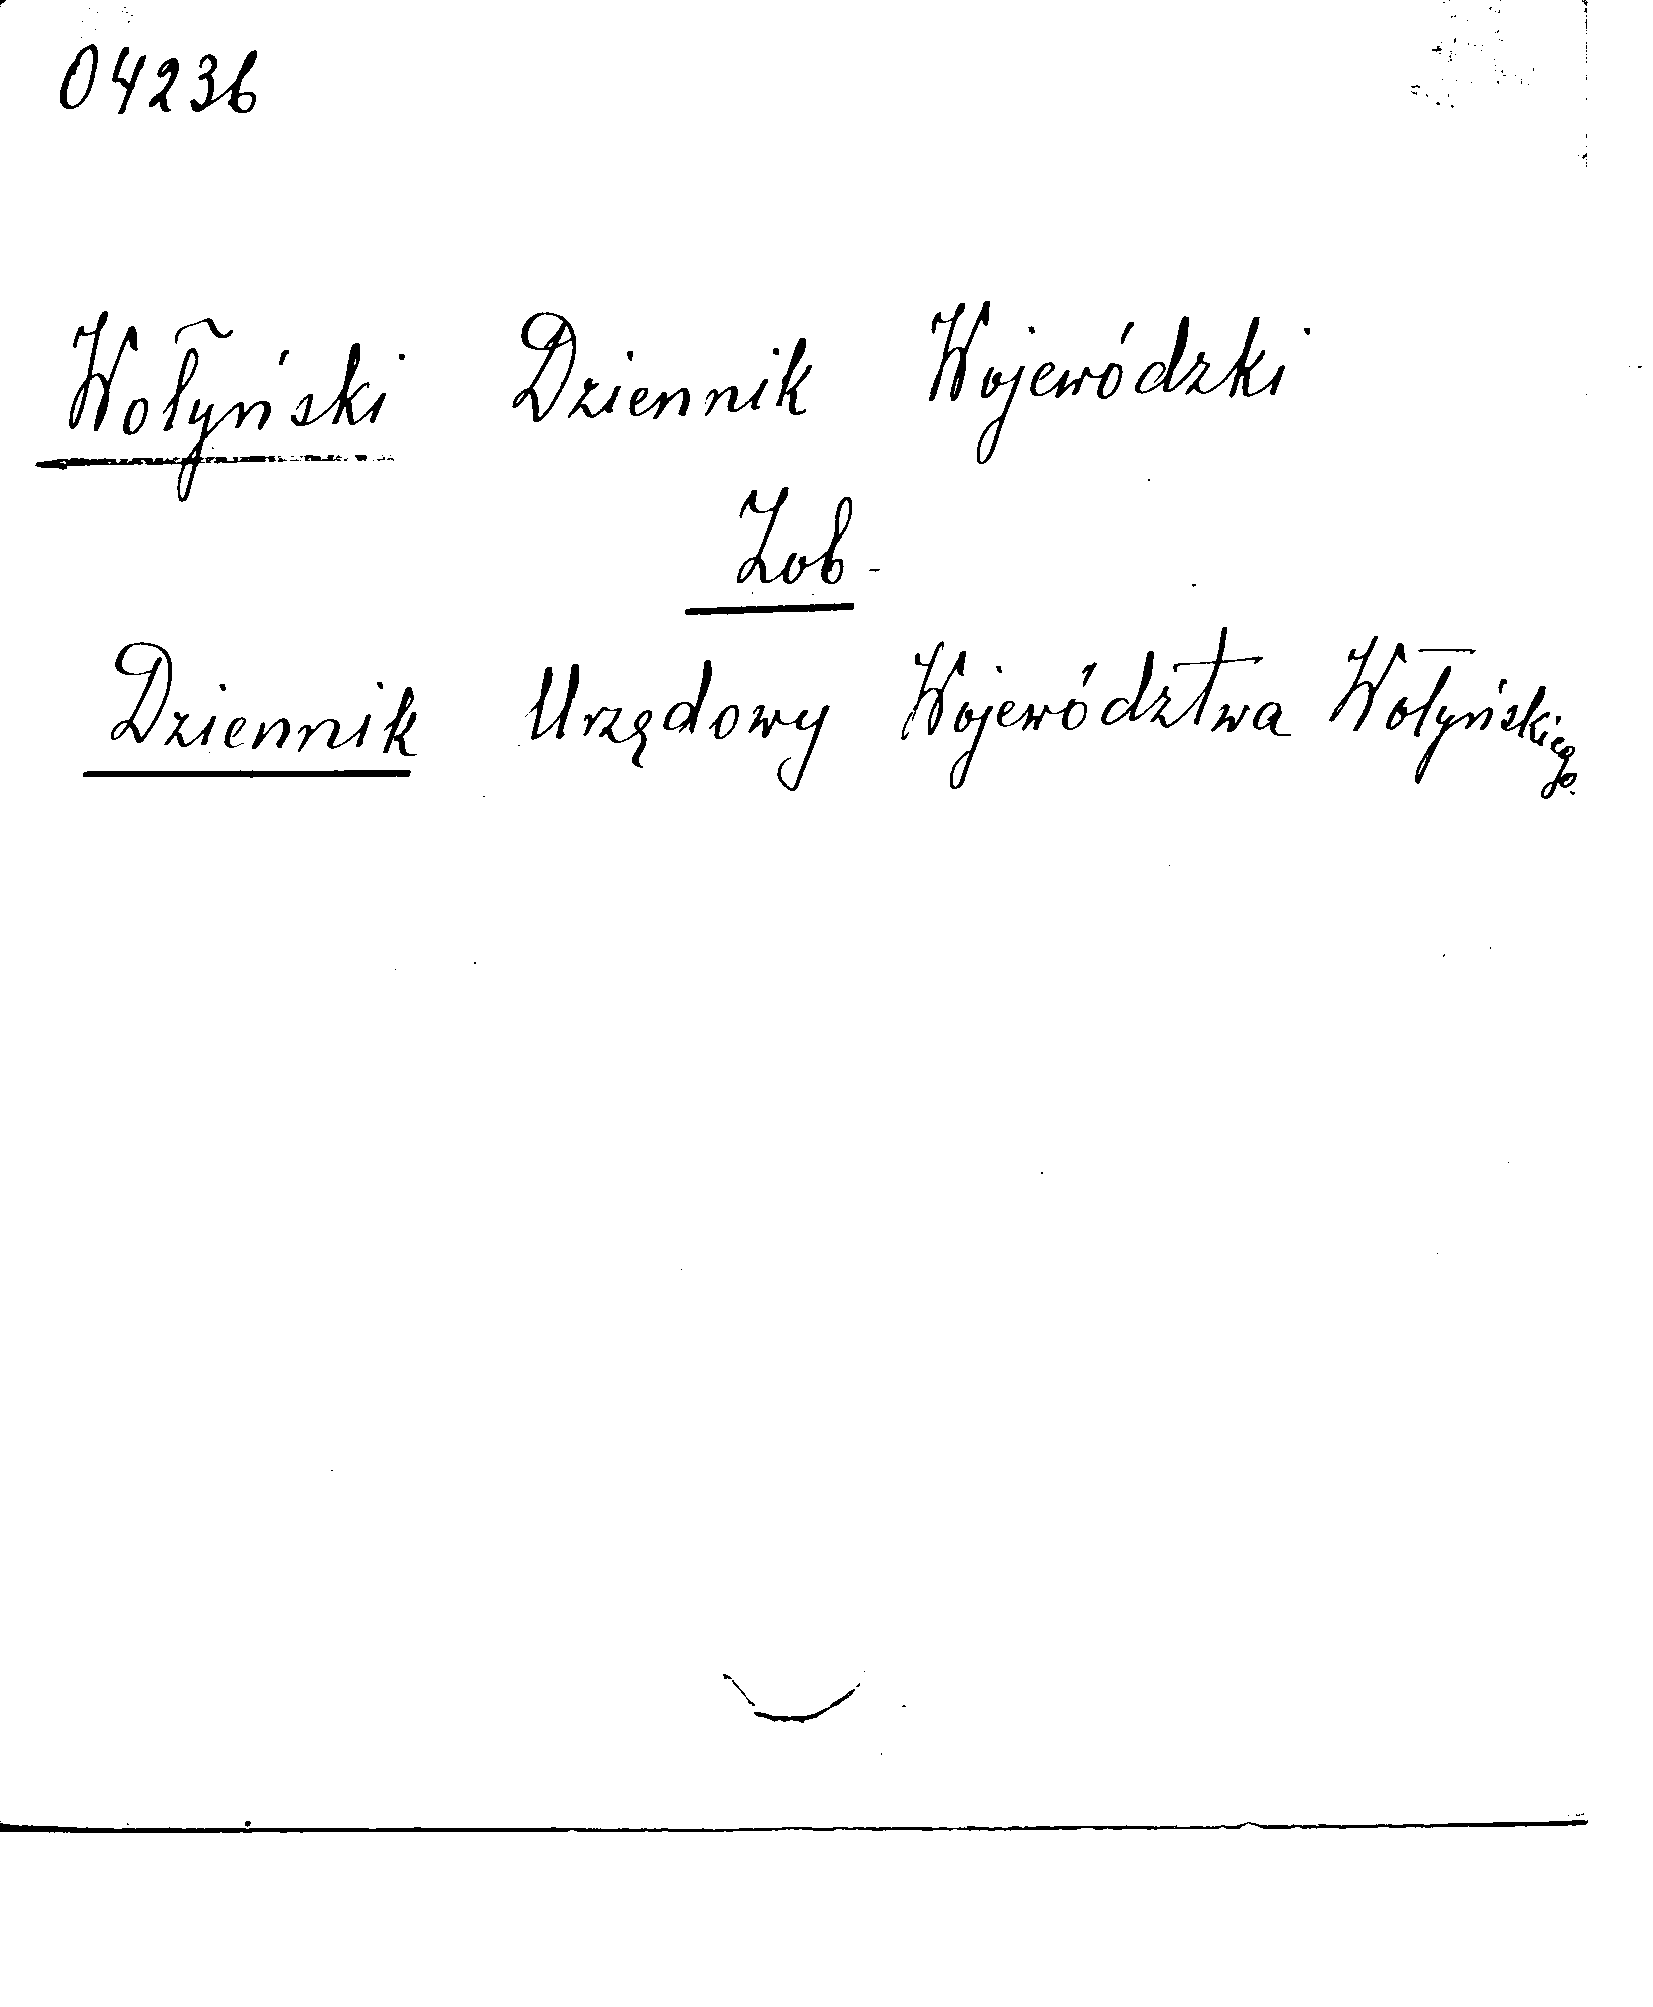 04236
Wołyński Dziennik Wojewódzki
Zob.
Dziennik Urzędowy Województwa Wołyńskiego.